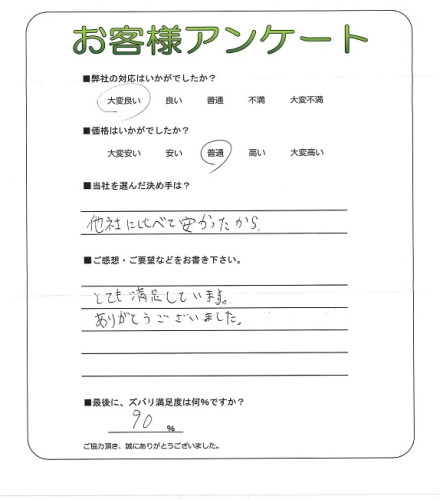 お客様アンケート
■弊社の対応はいかがでしたか？
大変良い 良い 普通 不満 大変不満
■価格はいかがでしたか？
大変安い 安い 普通 高い 大変高い
■当社を選んだ決め手は？
他社に比べて安かったから。
■ご感想・ご要望などをお書き下さい。
とても満足しています。
ありがとうございました。
■最後に、ズバリ満足度は何％ですか？
90 ％
ご協力頂き、誠にありがとうございました。